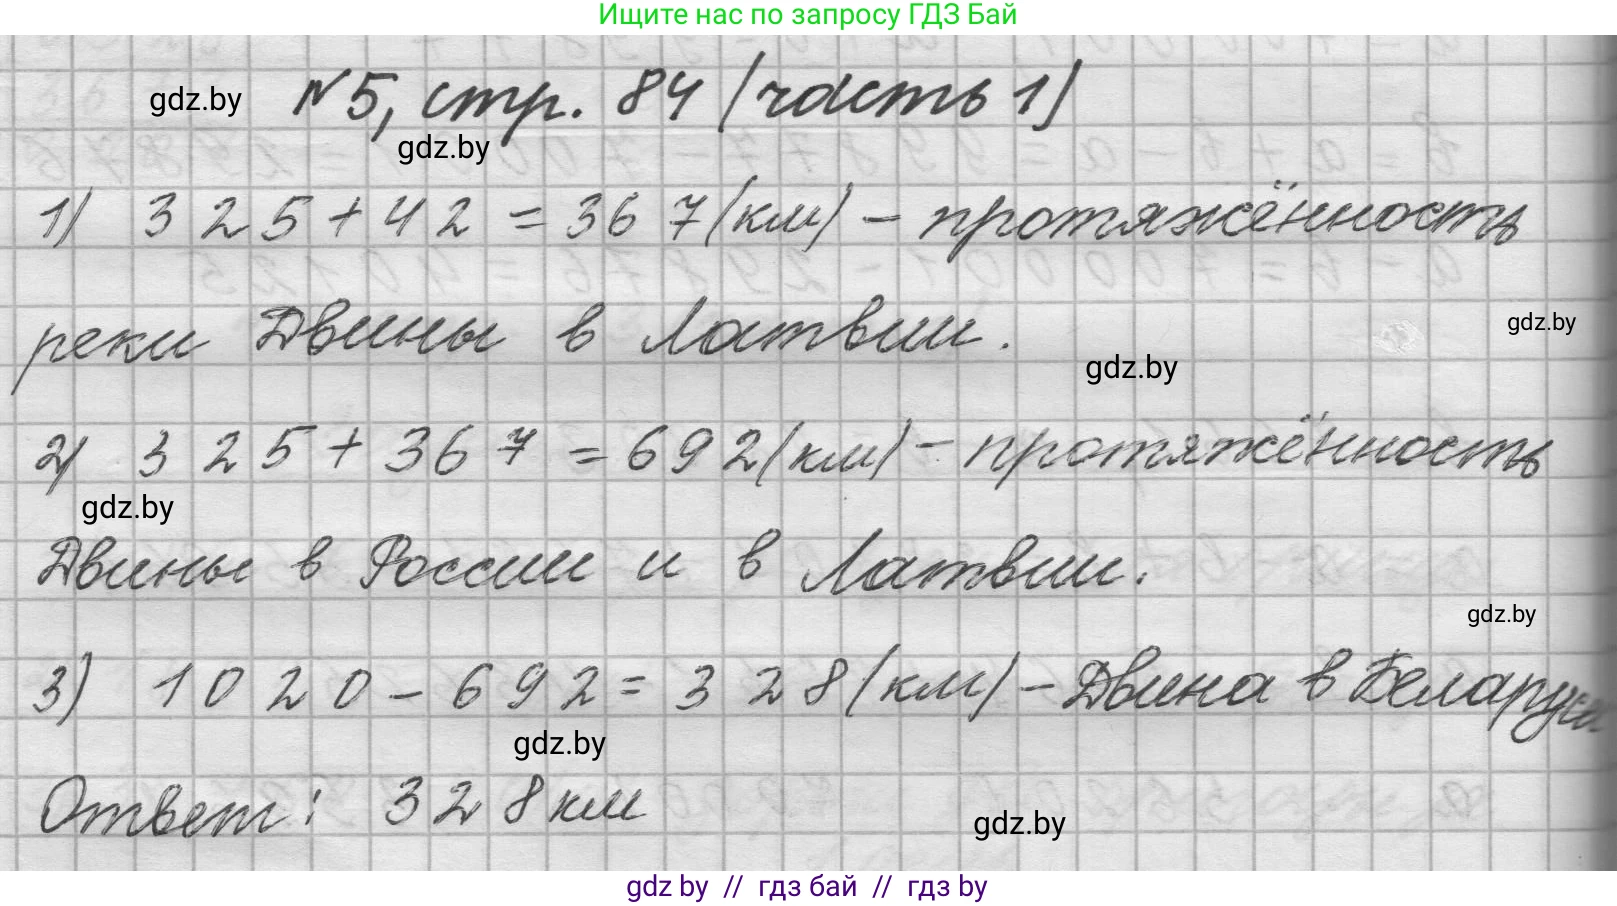 Ищите нас по запросу ГДЗ Бай
gdz.by №5, стр. 84 (часть 1)
gdz.by
1) 325+42=367(км) – протяжённость
реки Двины в Латвии.
gdz.by
gdz.by
2) 325+367=692(км) – протяжённость
gdz.by
Двины в России и в Латвии.
gdz.by
3) 1020–692=328(км) – Двина в Беларуси.
gdz.by
Ответ: 328км
gdz.by
gdz by // гдз бай // gdz by